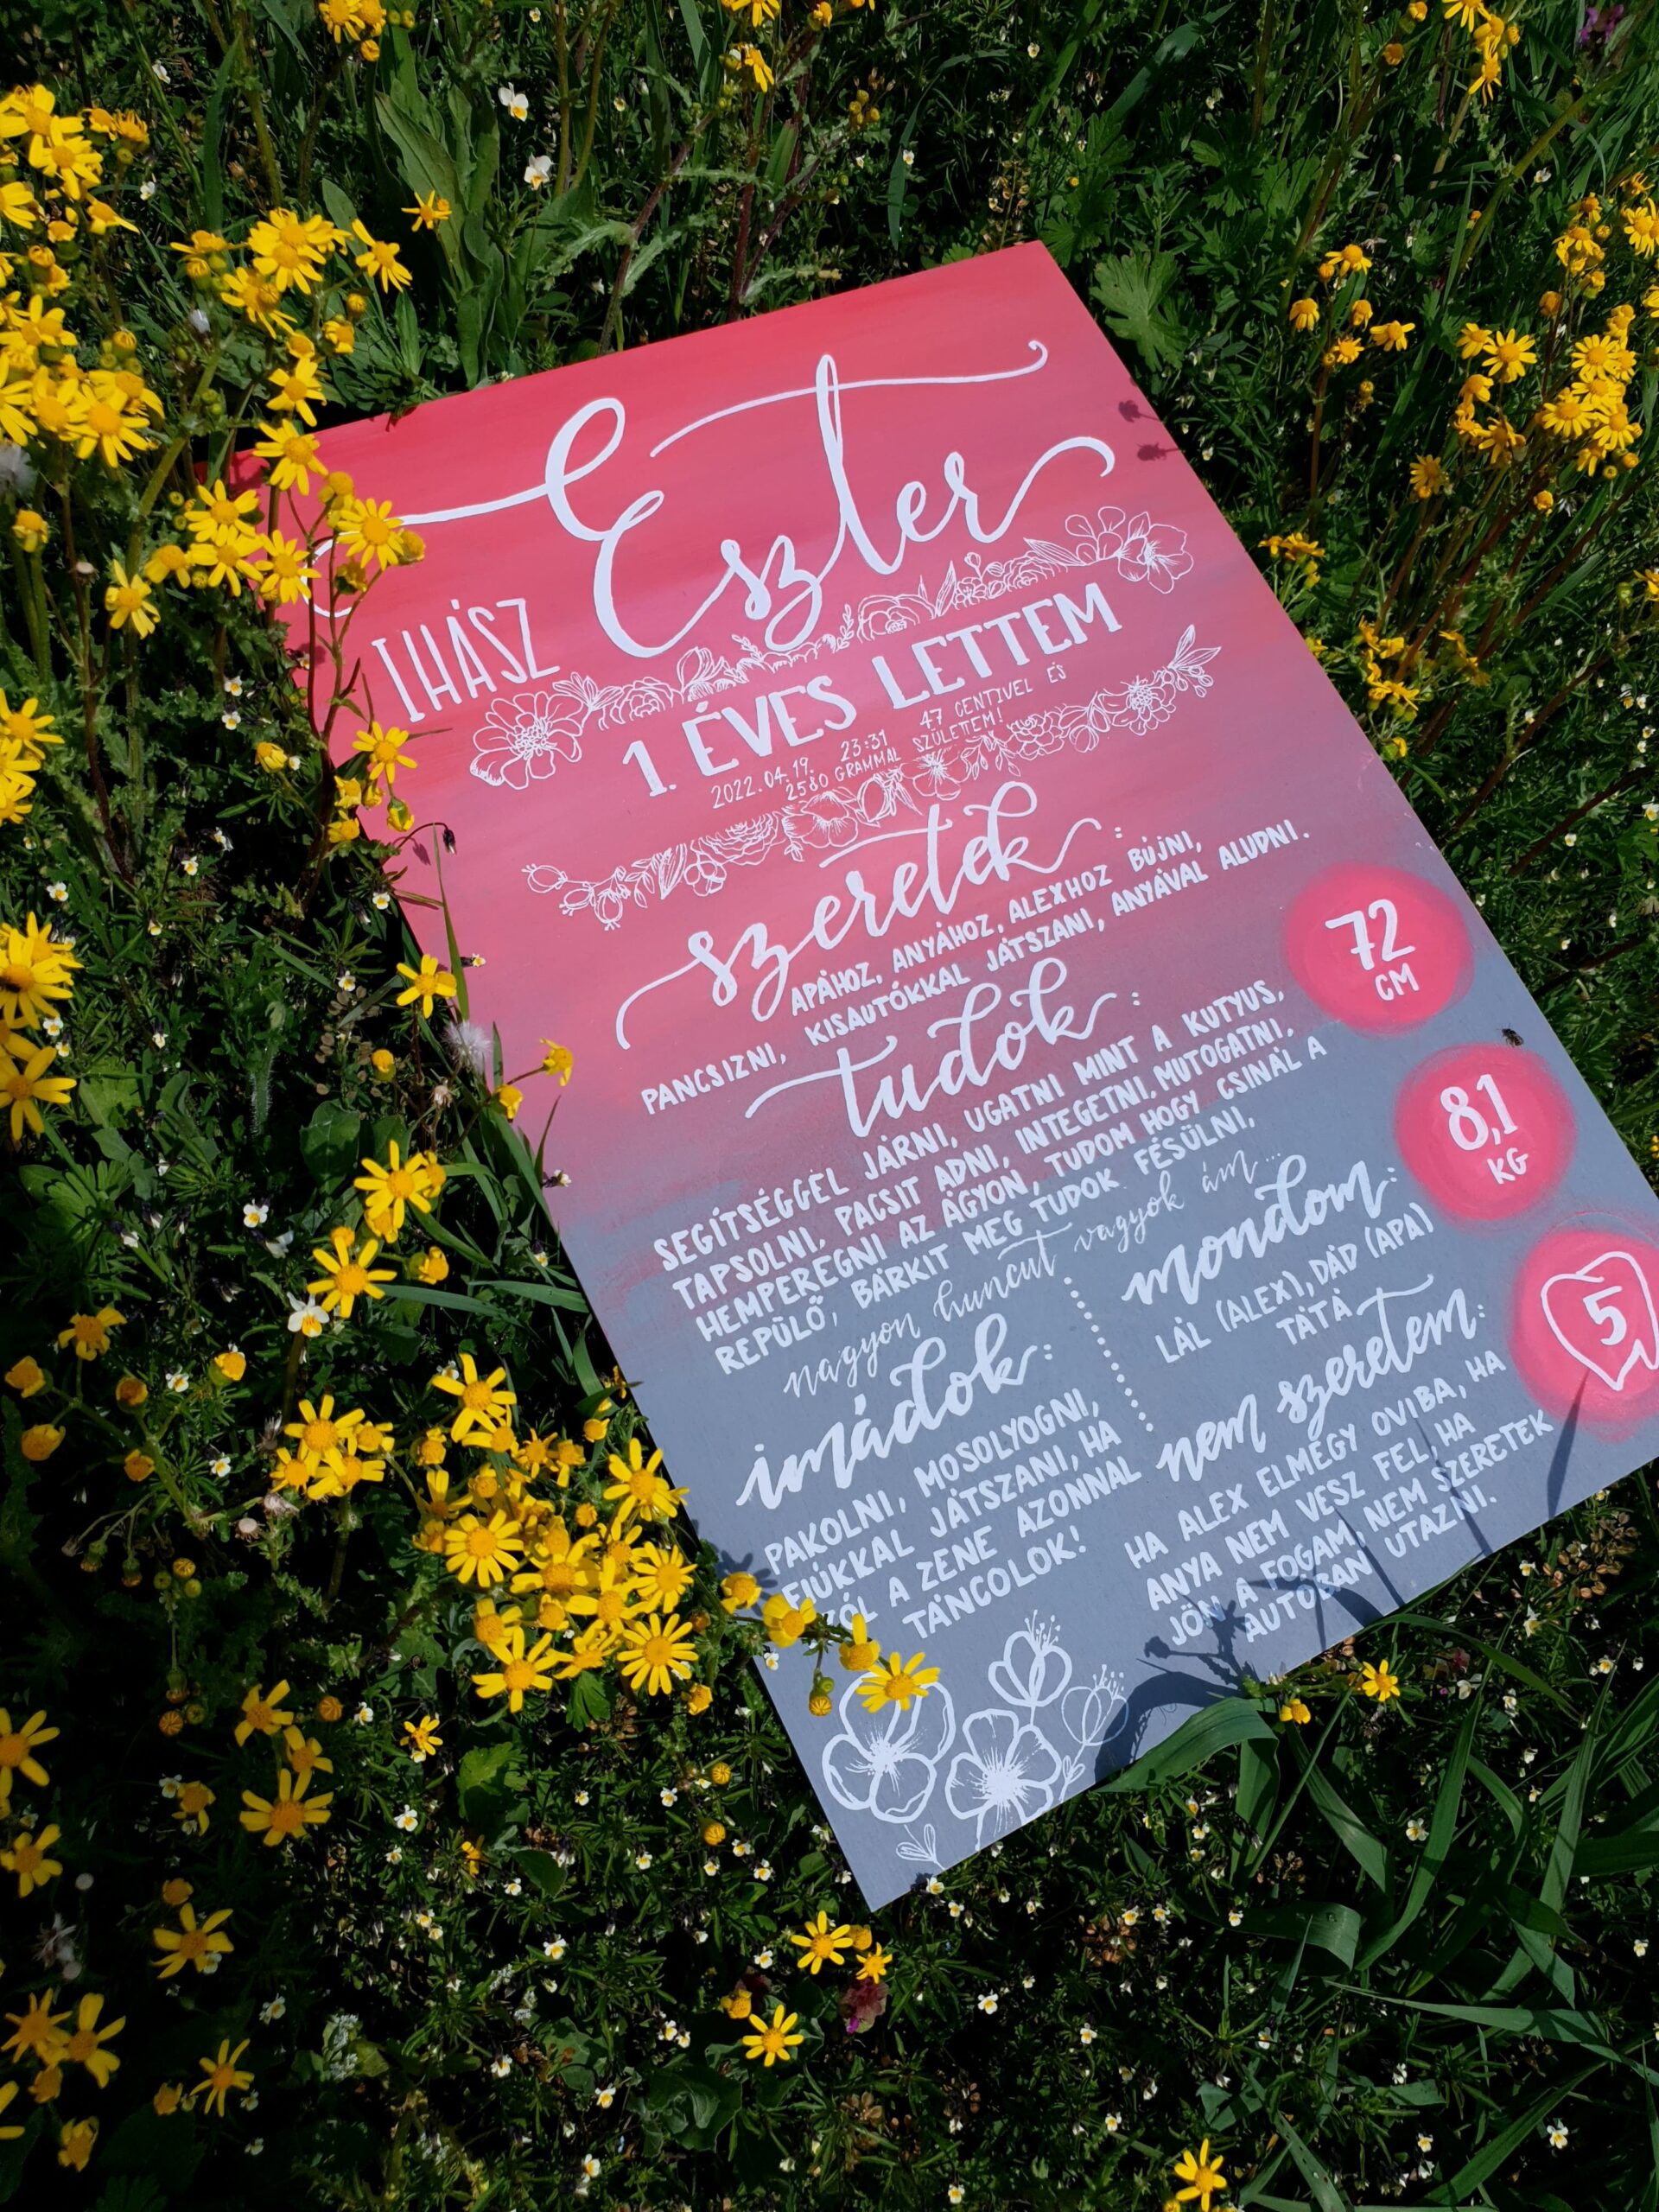 Eszter
IHÁSZ
1. ÉVES LETTEM
2022.04.19. 23:31 47 CENTIVEL ÉS
2580 GRAMMAL SZÜLETEM!
szeretek:
APÁHOZ, ANYÁHOZ, ALEXHOZ BÚJNI,
PANCSIZNI, KISAUTÓKKAL JÁTSZANI, ANYÁVAL ALUDNI.
tudok:
SEGÍTSÉGGEL JÁRNI, UGATNI MINT A KUTYUS,
TAPSOLNI, PACSIT ADNI, INTEGETNI, MUTOGATNI,
HEMPEREGNI AZ ÁGYON, TUDOM HOGY CSINÁL A
REPÜLŐ, BÁRKIT MEG TUDOK FÉSÜLNI,
nagyon huncut vagyok ám...
72
CM
8,1
KG
5
imádok:
PAKOLNI, MOSOLYOGNI,
FIÚKKAL JÁTSZANI, HA
SZÓL A ZENE AZONNAL
TÁNCOLOK!
mondom:
LÁL (ALEX), DÁD (APA)
TÁTÁ
nem szeretem:
HA ALEX ELMEGY OVIBA, HA
ANYA NEM VESZ FEL, HA
JÖN A FOGAM, NEM SZERETEK
AUTÓBAN UTAZNI.